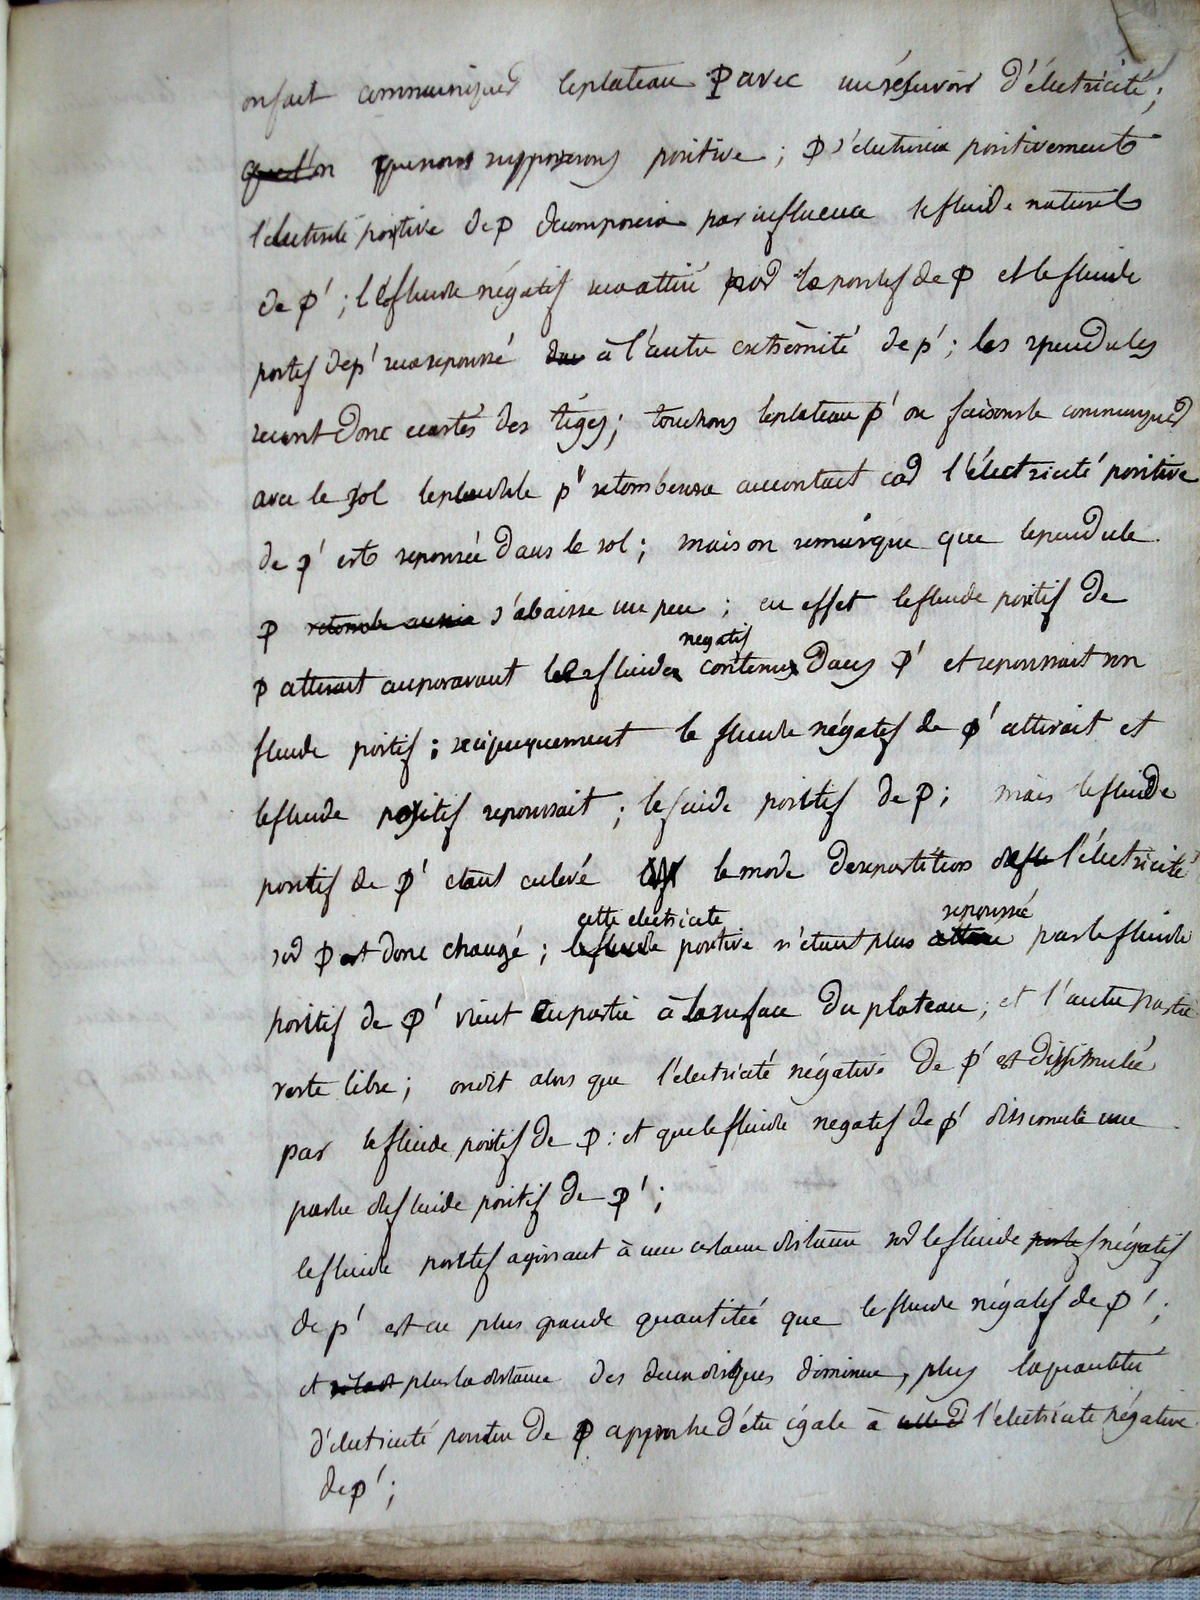 on fait communiquer le plateau P avec un réservoir d'électricité;
quel'on que nous supposerons positive; P s'électrisera positivement
l'électricité positive de P décomposera par influence le fluide naturel
de P'; le fluide négatif sera attiré par le positif de P et le fluide
positif de P' sera repoussé à l'autre extrèmité de P'; les pendules
seront donc ecartés des tiges; touchons le plateau P' ou faisons le communiquer
avec le sol le pendule P' retombera au contact car l'électricité positive
de P' est repoussée dans le sol; mais on remarque que le pendule
P retombe aussi s'abaisse un peu; en effet le fluide positif de
negatif
P attirait auparavant le fluide contenu dans P' et repoussait son
fluide positif; reciproquement le fluide négatif de P' attirait et
le fluide positif repoussait; le fuide positif de P; mais le fluide
positif de P' étant enlevé le mode de repartition de l'électricité
cette electricite repoussée
sur P est donc changé; le fluide positive n'étant plus attiree par le fluide
positif de P' vient en partie à la surface du plateau; et l'autre partie
reste libre; on dit alors que l'électricité négative de P' est dissimulée
par le fluide positif de P: et que le fluide negatif de P' dissimule une
partie du fluide positif de P';
le fluide positif agissant à une certaine distance sur le fluide positif négatif
de P' est en plus grande quantitée que le fluide négatif de P';
et plus la distance des deux disques diminue, plus la quantité
d'électricité positive de P approche d'être égale à celle d l'electricite négative
de P';